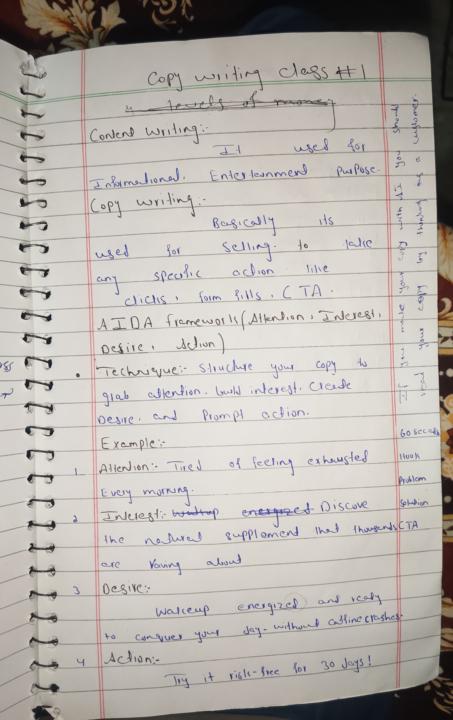 Copy writing class #1
4 levels of money
Content Writing:-
It used for
Informational, Entertainment purpose.
Copy writing:-
Basically its
used for selling. to take
any specific action like
clicks, form fills, CTA.
AIDA framework (Attention, Interest,
Desire, Action)
Technique:- Structure your copy to
grab attention. build interest. Create
Desire. and Prompt action.
Example:-
1 Attention:- Tired of feeling exhausted
Every morning.
2 Interest:- energized Discove
the natural supplement that thousands
are Raving about
3 Desire:-
Wakeup energized and ready
to conquer your day- without caffine crashes.
4 Action:-
Try it risk-free for 30 days!
If you make your copy with AI you should
read your copy by thinking as a customer.
60 seconds
Hook
Problem
Solution
CTA